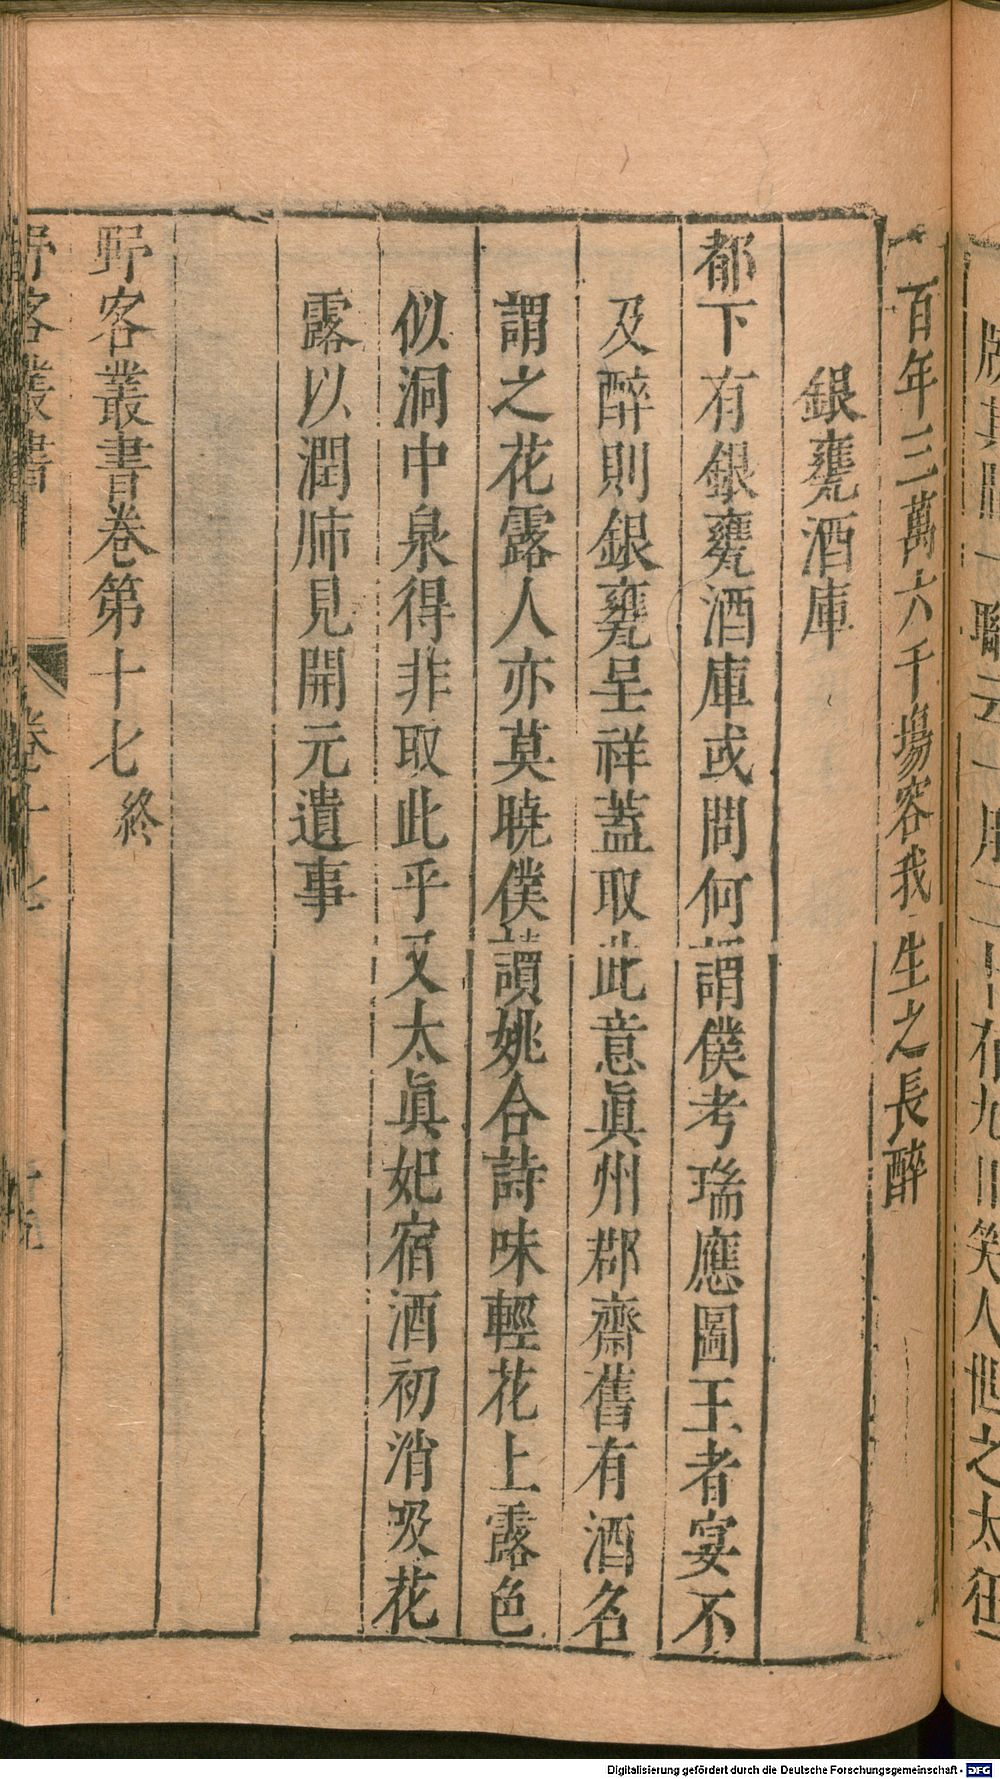 百年三萬六千場容我生之長醉
銀甕酒庫
都下有銀甕酒庫或問何謂僕考瑞應圖王者宴不
及醉則銀甕呈祥蓋取此意眞州郡齋舊有酒名
謂之花露人亦莫曉僕讀姚合詩味輕花上露色
似洞中泉得非取此乎又太眞妃宿酒初消吸花
露以潤肺見開元遺事
野客叢書卷第十七終
野客叢書 卷十七
Digitalisierung gefördert durch die Deutsche Forschungsgemeinschaft - DFG